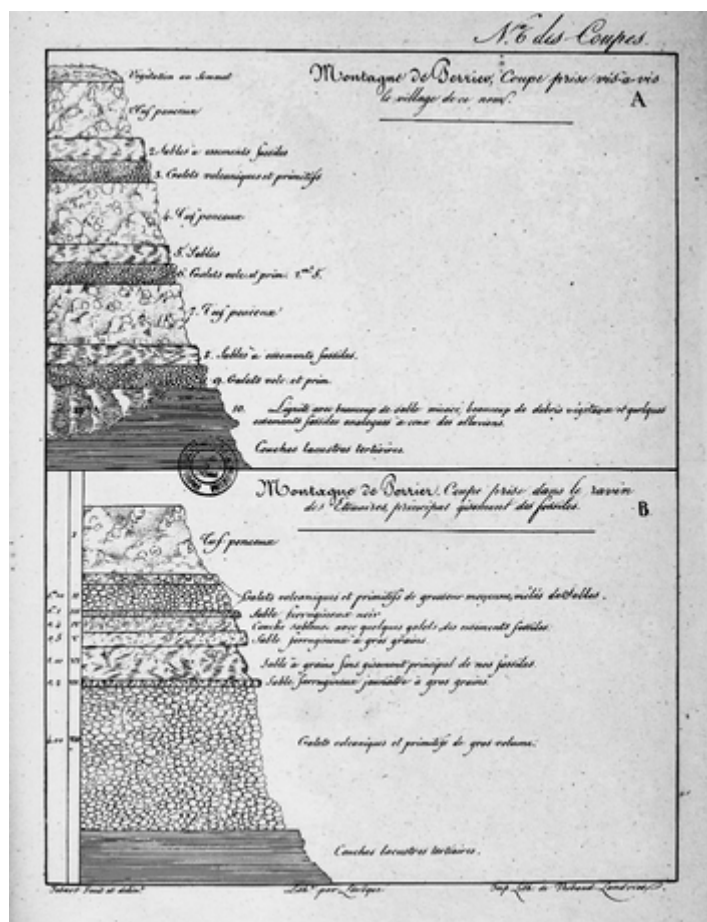 des Coupes.
Montagne de Perrier, Coupe prise vis-a-vis
le village de ce nom.
A
Végétation au Sommet
Tuf ponceux
2. Sables a ossements fossiles
3. Galets volcaniques et primitifs
4. Tuf ponceux
5. Sables
6. Galets volc. et prim.
7. Tuf ponceux
8. Sables a ossements fossiles.
9. Galets volc. et prim.
10. Lignite avec beaucoup de sable micacé, beaucoup de débris végétaux et quelques
ossements fossiles analogues a ceux des alluvions.
Couches lacustres tertiaires.
Montagne de Perrier. Coupe prise dans le ravin
des Etouaires, principal gisement des fossiles.
B
I
Tuf ponceux
II
Galets volcaniques et primitifs de grosseur moyenne, mêlés de Sables.
III
Sable ferrugineux noir
IV
Couche sableuse avec quelques galets, des ossements fossiles.
V
Sable ferrugineux à gros grains.
VI
Sable à grains fins gisement principal de nos fossiles.
VII
Sable ferrugineux jaunâtre à gros grains
Galets volcaniques et primitifs de gros volume.
Couches lacustres tertiaires.
Lith. par
Imp. Lith. de Thibaud-Landriot